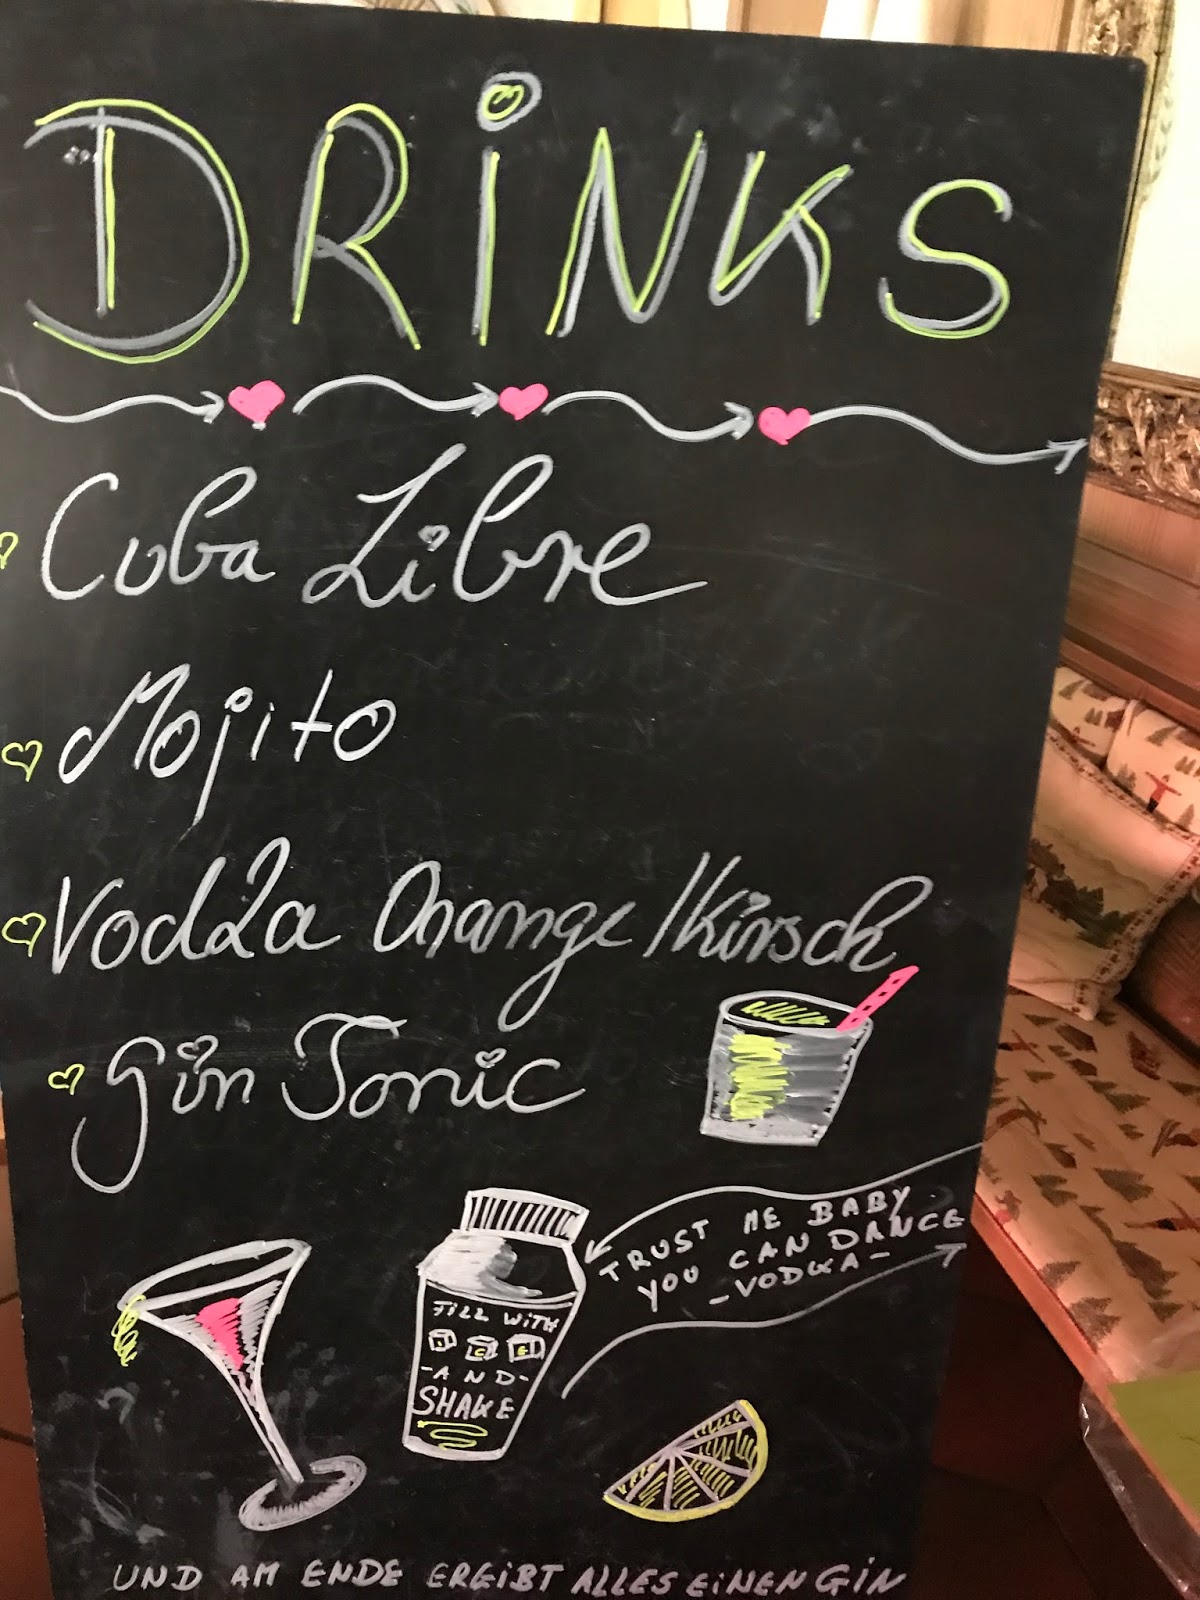 DRiNKS
Cuba Libre
Mojito
Vodka Orange / Kirsch
Gin Tonic
TRUST ME BABY
YOU CAN DANCE
- VODKA -
FiLL WiTH
I C E
- A N D -
SHAKE
UND AM ENDE ERGiBT ALLES EiNEN GiN